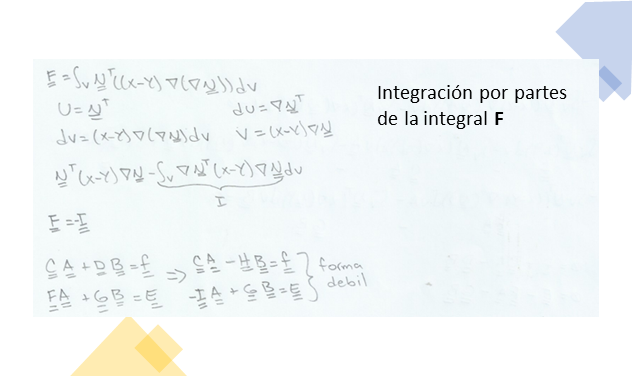 F = ∫v Nᵀ((x-Y) ∇(∇N)) dv
U = Nᵀ du = ∇Nᵀ
dv = (x-Y) ∇(∇N) dv V = (x-Y) ∇N
Nᵀ(x-Y) ∇N - ∫v ∇Nᵀ(x-Y) ∇N dv
I
F = -I
C A + D B = f => C A - H B = f } forma
F A + G B = E -I A + G B = E debil
Integración por partes
de la integral F